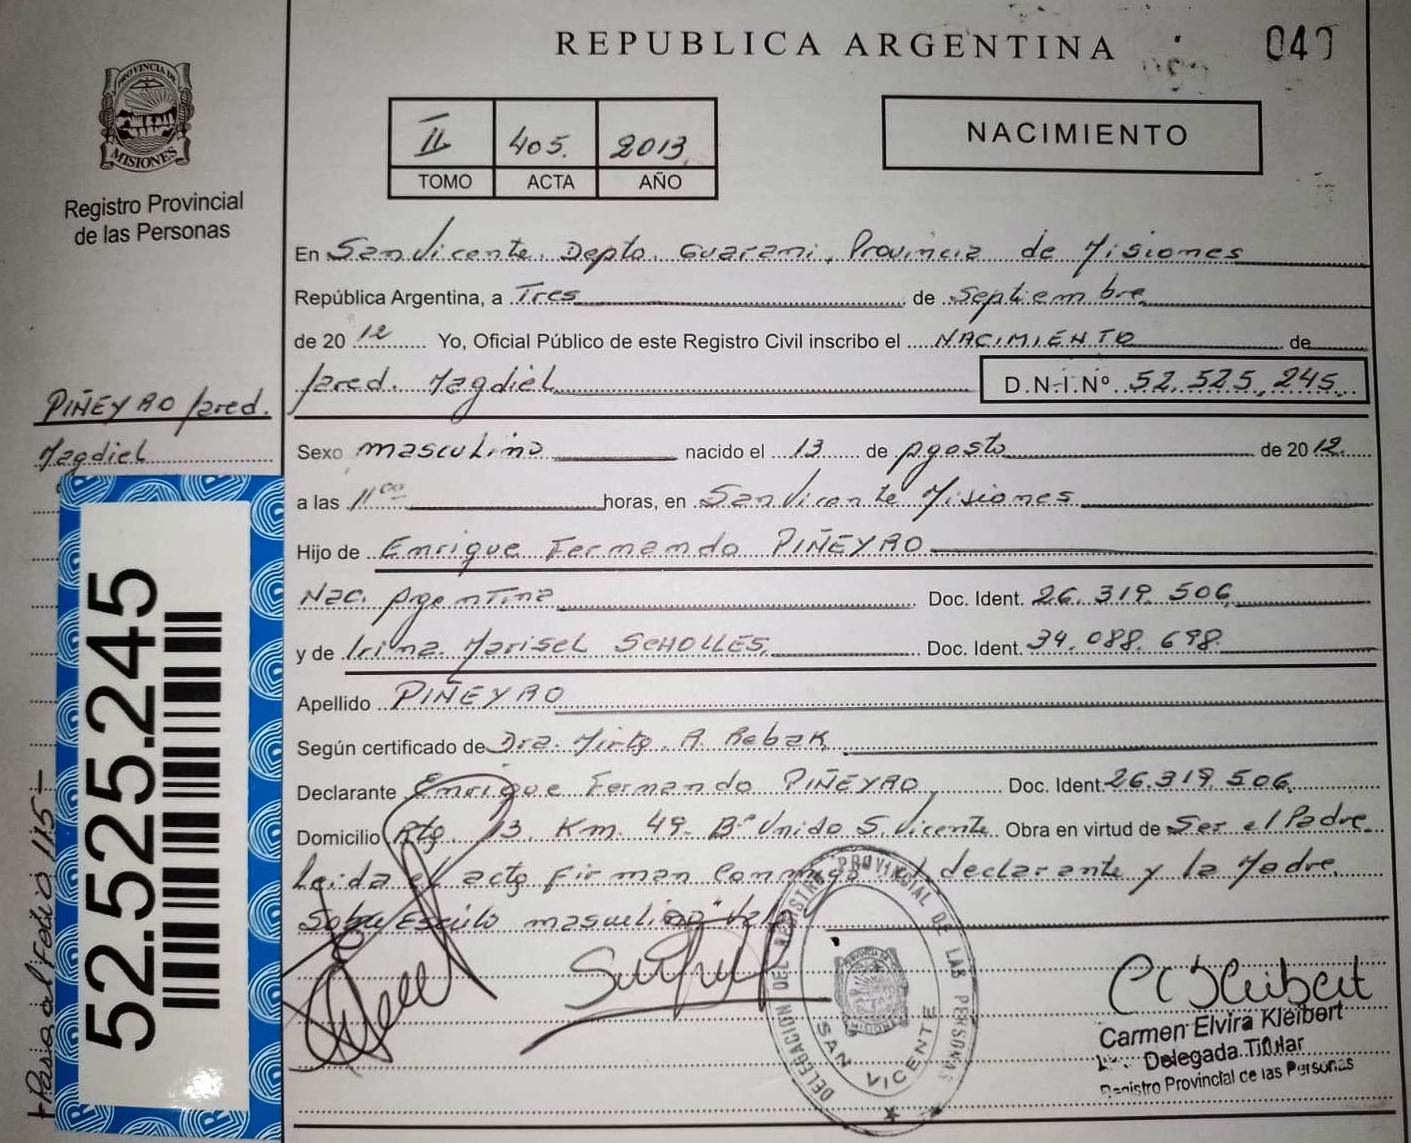 REPUBLICA ARGENTINA
PROVINCIA DE
MISIONES
Registro Provincial
de las Personas
II 405. 2013
TOMO ACTA AÑO
NACIMIENTO
En San Vicente, Depto. Guaraní, Provincia de Misiones
República Argentina, a Tres de Septiembre
de 2012 Yo, Oficial Público de este Registro Civil inscribo el NACIMIENTO de
Jared. Magdiel D.N.I.Nº 52.525.245
PIÑEYRO Jared.
Magdiel
Sexo masculino nacido el 13 de Agosto de 2012
a las 11 00 horas, en San Vicente Misiones
Hijo de Enrique Fernando PIÑEYRO
Nac. Argentina Doc. Ident. 26.319.506
y de Marisel SCHOLLES, Doc. Ident. 34.088.698
Apellido PIÑEYRO
Según certificado de Dra. Mirta. A. Rebak
Declarante Enrique Fernando PIÑEYRO, Doc. Ident. 26.319.506
Domicilio Rta. 13. Km. 49. Bº Unido S. Vicente Obra en virtud de Ser el Padre
Leida el acta firman conmigo el declarante y la Madre.
Sobre/Escrito masculino vale
52.525.245
+Pasa al Folio 115-
DELEGACION DEL REGISTRO PROVINCIAL DE LAS PERSONAS
SAN VICENTE
Carmen Elvira Kleibert
Delegada Titular
Registro Provincial de las Personas